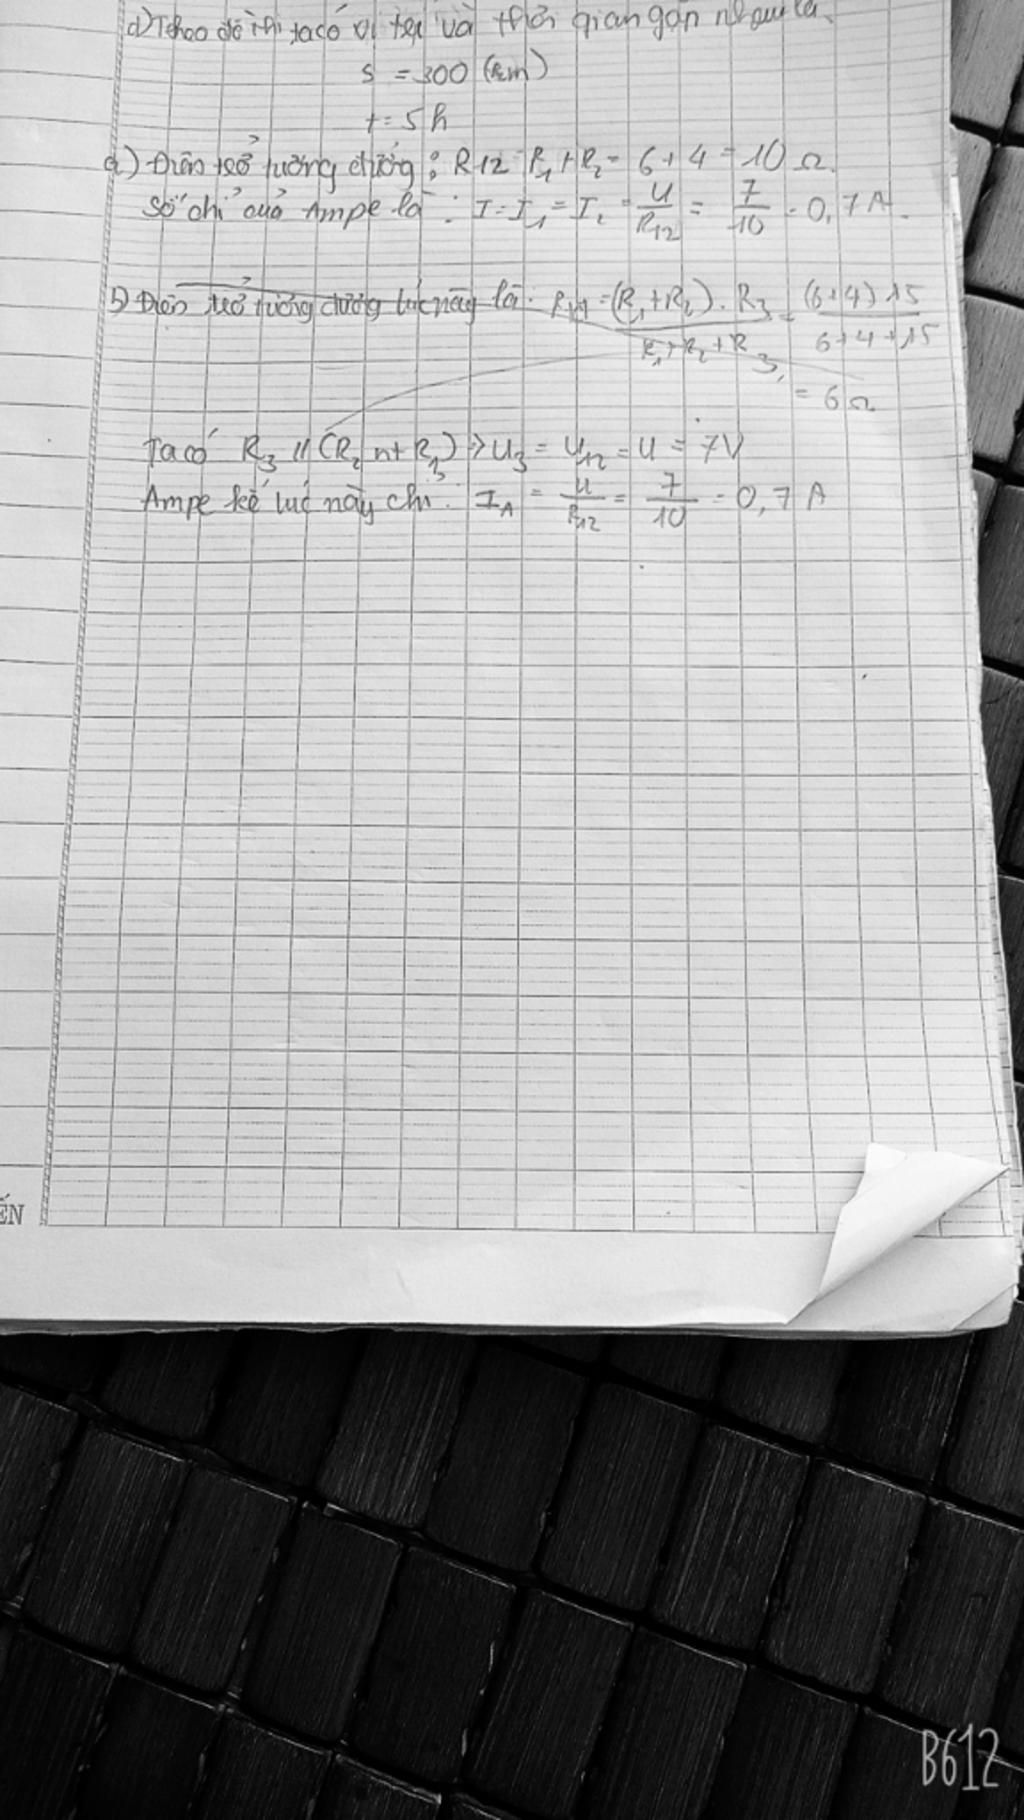 d) Theo đồ thị ta có vị trí và thời gian gặp nhau là
s = 300 (km)
t = 5 h
a) Điện trở tương đương : R12 = R1 + R2 = 6 + 4 = 10 Ω.
Số chỉ của Ampe là : I = I1 = I2 = U/R12 = 7/10 = 0,7 A.
b) Điện trở tương đương lúc này là: = (R1 + R2) . R3 / R1 + R2 + R3 = (6+4) 15 / 6+4+15
= 6 Ω
Ta có R3 // (R2 nt R1) => U3 = U12 = U = 7V
Ampe kế lúc này chỉ: IA = U/R12 = 7/10 = 0,7 A
ẾN
B612